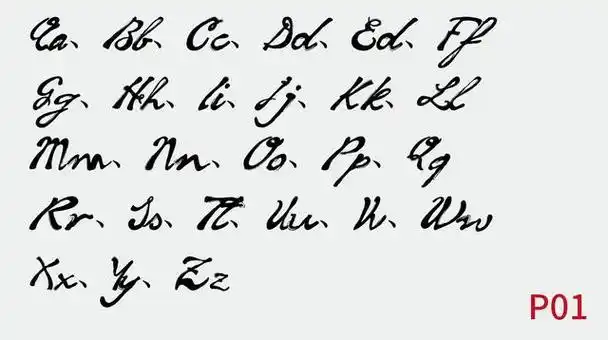 Aa、Bb、Cc、Dd、Ed、Ff
Gg、Hh、Ii、Jj、Kk、Ll
Mm、Nn、Oo、Pp、Qq
Rr、Ss、Tt、Uu、Vv、Ww
Xx、Yy、Zz
P01